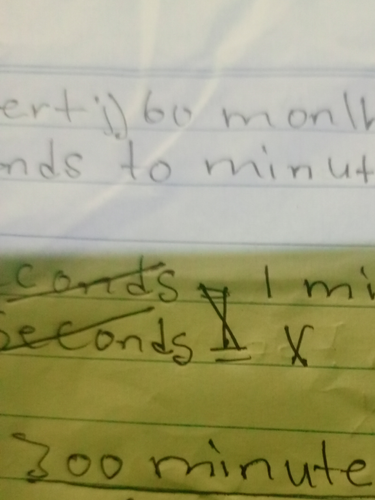 ert i) 60 month
nds to minut
conds 1 mi
seconds X
300 minute